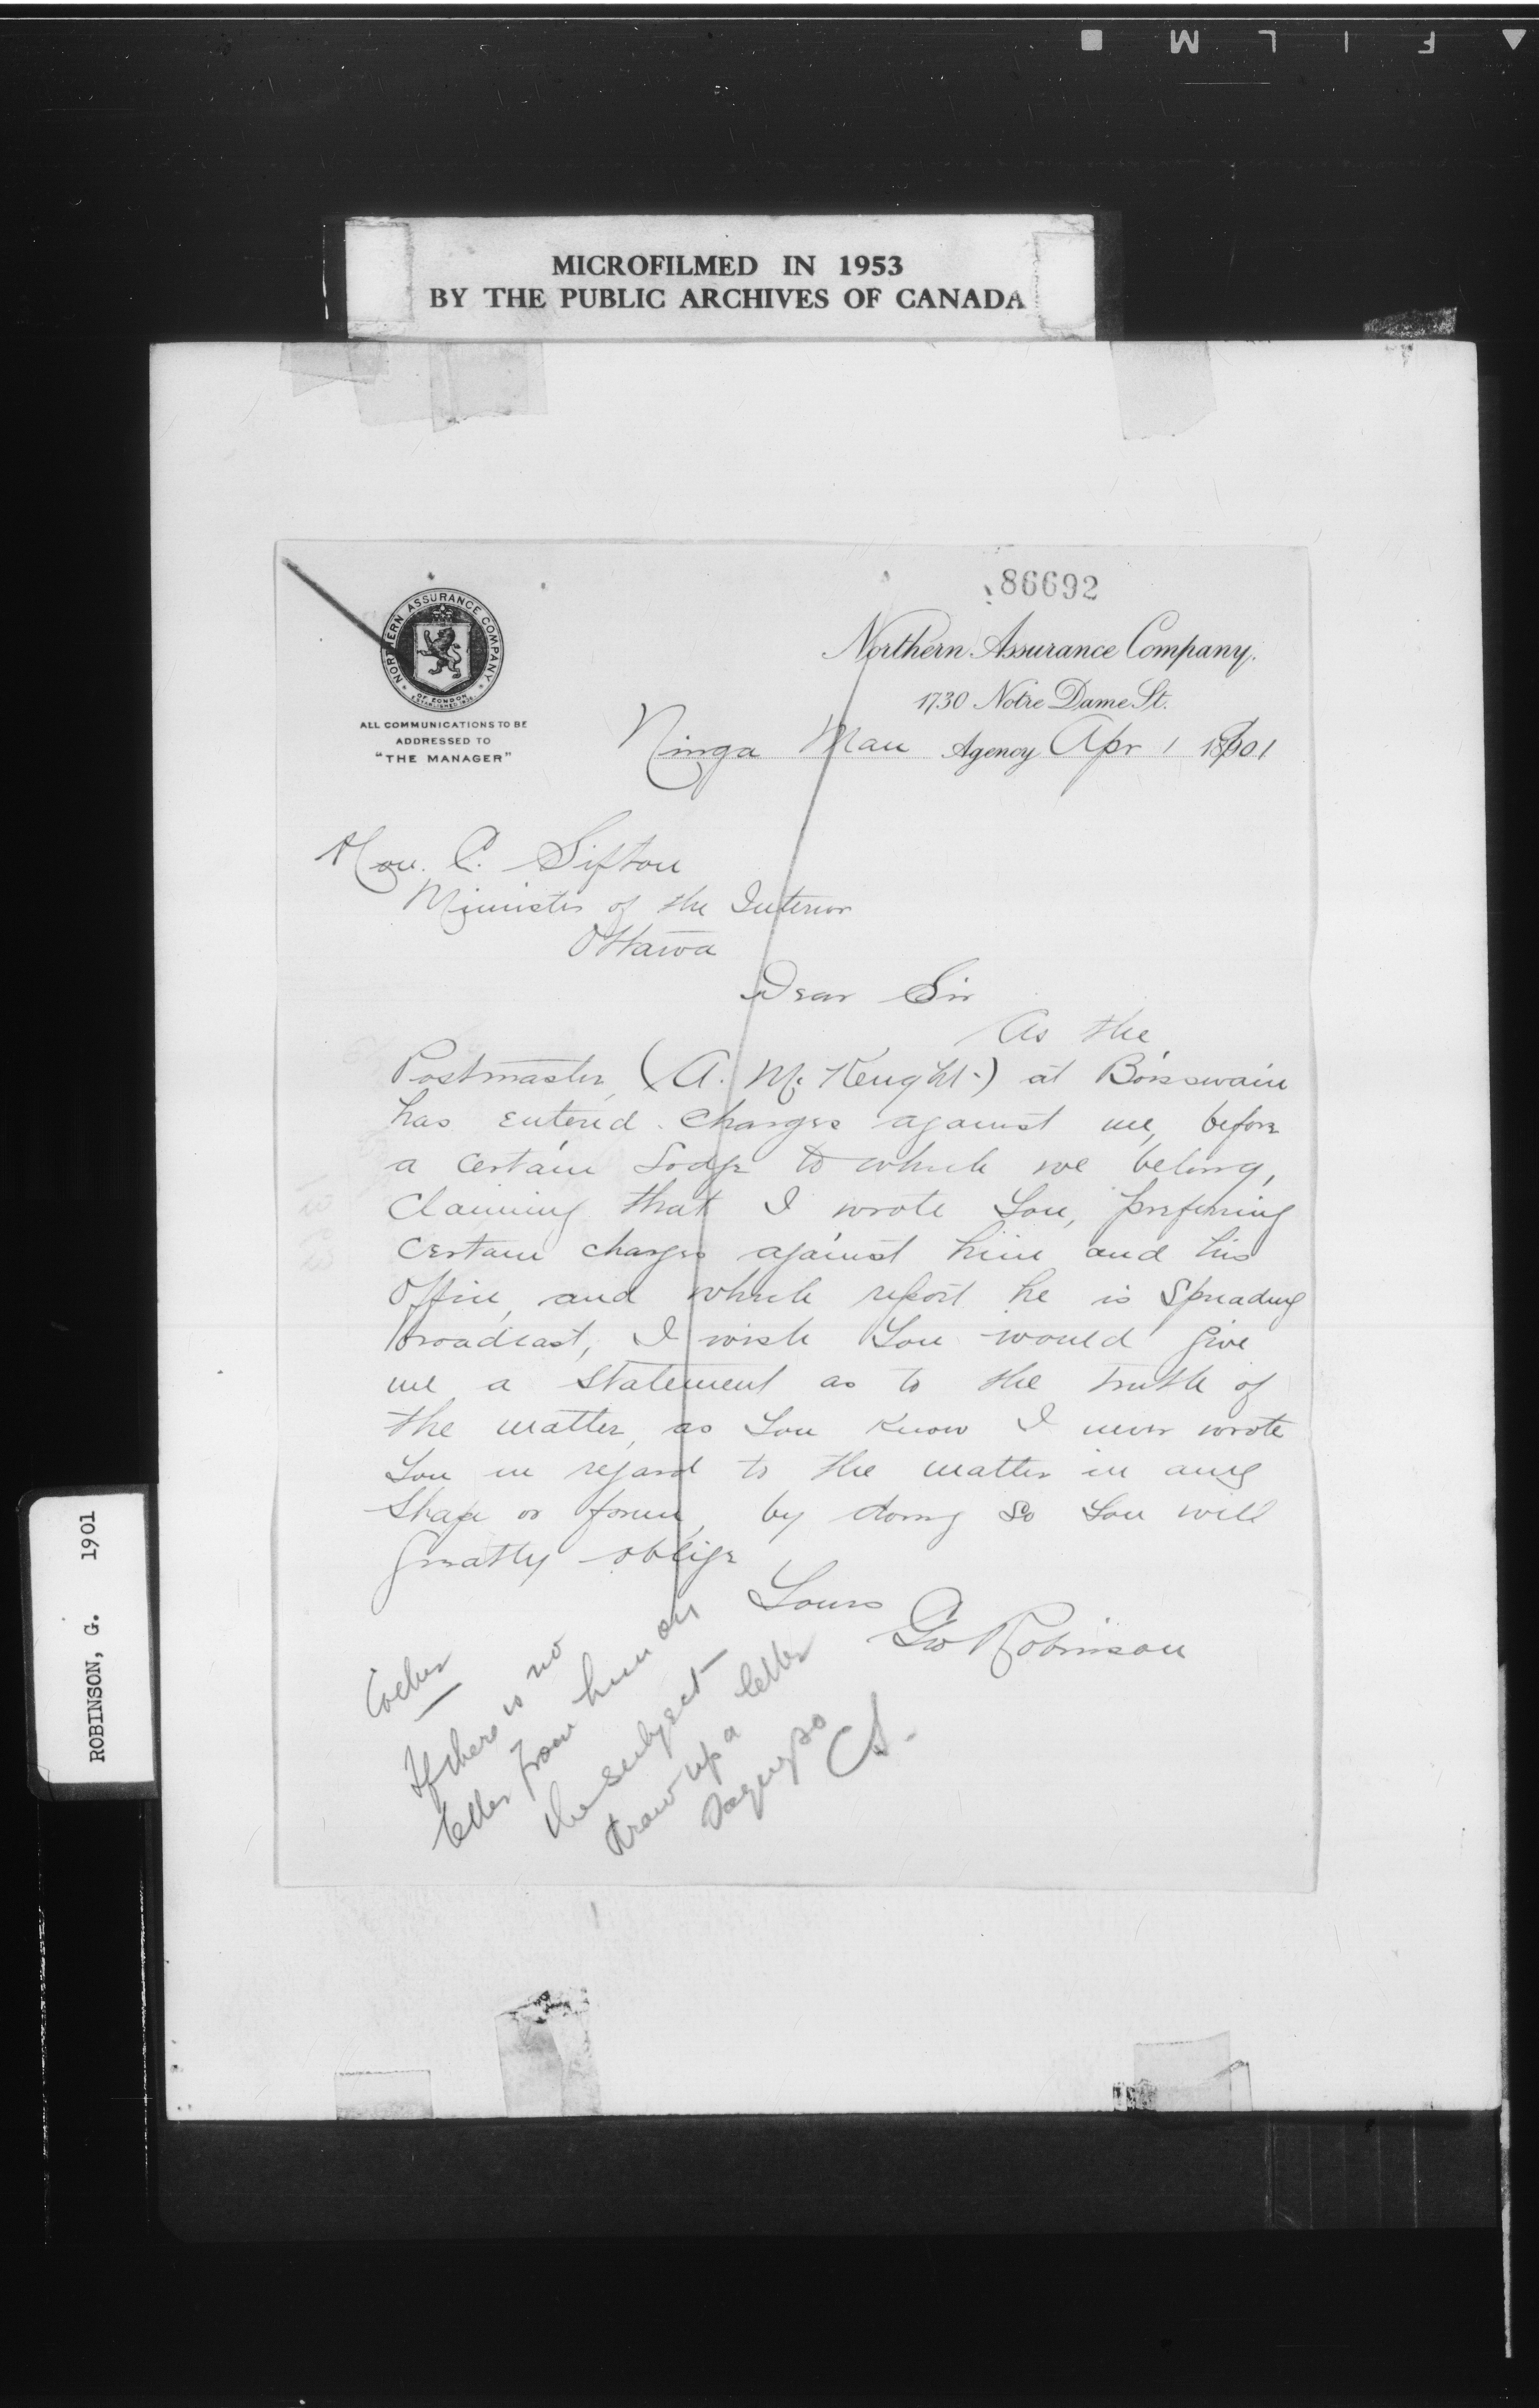 F I L M
MICROFILMED IN 1953
BY THE PUBLIC ARCHIVES OF CANADA
86692
NORTHERN ASSURANCE COMPANY
OF LONDON
ESTABLISHED 1836
ALL COMMUNICATIONS TO BE
ADDRESSED TO
"THE MANAGER"
Northern Assurance Company.
1730 Notre Dame St.
Ninga Man Agency Apr 1 1901
Hon. C. Sifton
Minister of the Interior
Ottawa
Dear Sir
As the
Postmaster, (A. Mc Knight) at Boissevain
has entered charges against me, before
a certain Lodge to which we belong,
claiming that I wrote You, preferring
certain charges against him and his
Office, and which report he is spreading
broadcast, I wish You would give
me a statement as to the truth of
the matter, as You know I never wrote
You in regard to the matter in any
shape or form, by doing so You will
greatly oblige
Yours
Geo Robinson
If there is no
letter from him on
the subject
draw up a letter
saying so
CS.
ROBINSON, G. 1901